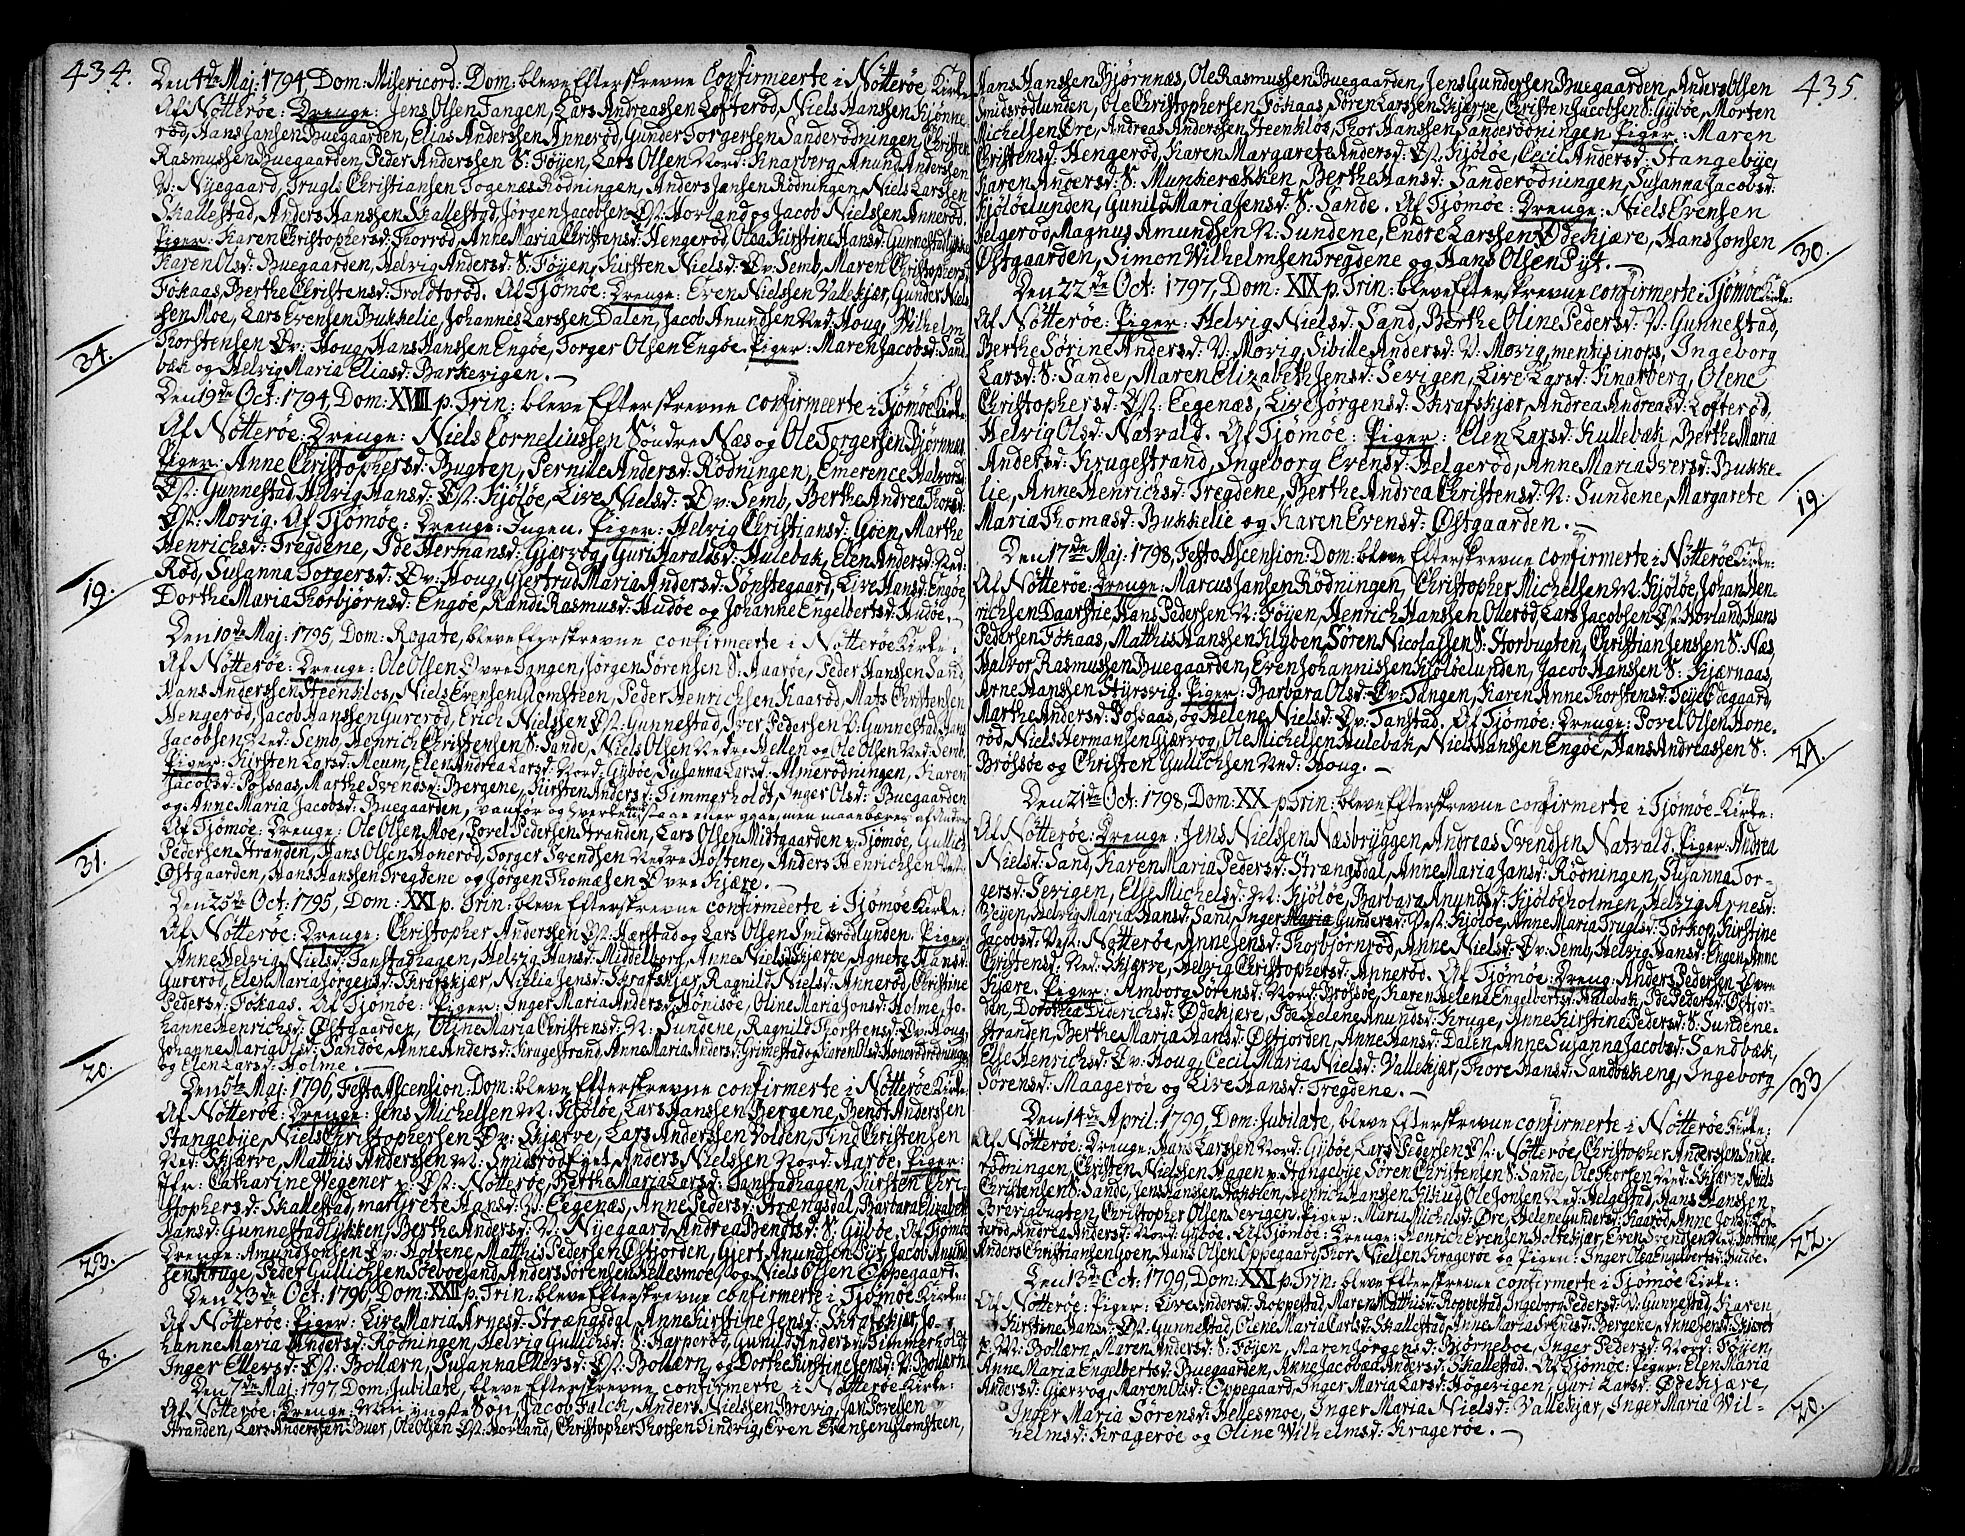 434.
Den 4de Maj: 1794, Dom: Misericord: Dom: bleve Efterskrevne Confirmeerte i Nötteröe Kirke
Af Nötteröe: Drenge: Jens Olsen Tangen, Lars Andreassen Lofteröd, Niels Hanssen Kjönne-
röd, Hans Jansen Buegaarden, Elias Anderssen Anneröd, Gunder Torgersen Sanderödningen, Christen
Rasmussen Buegaarden, Peder Anderssen S: Föyen, Lars Olsen Nord: Knarberg, Anund Andersen
V: Nyegaard, Trugls Christiansen Togenæs Rödningen, Anders Jansen Rödningen, Niels Larssen
Skallestad, Anders Hanssen Skallestad, Jörgen Jacobsen Øst: Horland og Jacob Nielssen Anneröd.
Piger: Karen Christophersd: Thorröd, Anne Maria Christensd: Hengeröd, Olea Kirstine Hansd: Gunnestad
Karen Olsd: Buegaarden, Helvig Andersd: S: Föyen, Kirsten Nielsd: Øv: Semb, Maren Christophersd:
Fökaas, Berthe Christensd: Troldtoröd. Af Tjömöe: Drenge: Even Nielssen Vallekjær, Gunder Niel-
sen Moe, Lars Evensen Bukkelie, Johannes Larssen Dalen, Jacob Anundsen Ned: Houg, Wilhelm
Thorstensen Øv: Houg, Hans Hanssen Engöe, Torger Olsen Engöe. Piger: Maren Jacobsd: Sand-
bæk og Helvig Maria Eliasd: Barkevigen. —
34.
Den 19de Oct: 1794, Dom: XVIII p. Trin: bleve Efterskrevne confirmeerte i Tjömöe Kirke:
Af Nötteröe: Drenge: Niels Corneliussen Söndre Næs og Ole Torgersen Bjönnæs
Piger: Anne Christophersd: Bugten, Pernille Andersd: Rödningen, Emerence Halvorsd:
Øst: Gunnestad, Helvig Hansd: Øst: Kjölöe, Live Nielsd: Øv: Semb, Berthe Andrea Thorsd:
Øst: Morig. Af Tjömöe: Drenge: Ingen. Piger: Helvig Christiansd: Goen, Marthe
Henrichsd: Tregdene, Ide Hermansd: Gjærvog, Guri Haraldsd: Hulebak, Elen Andersd: Ned:
Röd, Susanna Torgersd: Øv: Houg, Gjertrud Maria Andersd: Sönstegaard, Live Hansd: Engöe,
Dorthe Maria Thorbjörnsd: Engöe, Randi Rasmusd: Hudöe og Johanne Engelbertsd: Hudöe. —
19.
Den 10de Maj: 1795, Dom: Rogate, bleve Efterskrevne confirmeerte i Nötteröe Kirke:
Af Nötteröe: Drenge: Ole Olsen Øvre Tangen, Jörgen Sörensen S: Haaröe, Peder Hanssen Sand,
Hans Anderssen Steenklos, Niels Evensen Glomsteen, Peder Henrichsen Kaaröd, Mats Christensen
Hengeröd, Jacob Hanssen Gureröd, Erich Nielssen Øst: Gunnestad, Iver Pedersen V: Gunnestad, Hans
Jacobsen Ned: Semb, Henrich Christensen S: Sande, Niels Olsen Nedre Hellen og Ole Olsen Ned: Semb.
Piger: Kirsten Larsd: Meum, Elen Andrea Larsd: Nord: Gyböe, Susanna Larsd: Almerödningen, Karen
Jacobsd: Fossaas, Marthe Svendsd: Bergene, Kirsten Andersd: Timmerholdt, Inger Olsd: Buegaarden
og Anne Maria Jacobsd: Buegaarden,
Af Tjömöe: Drenge: Ole Olsen Moe, Povel Pedersen Stranden, Lars Olsen Midtgaarden p. Tjömöe, Gullich
Pedersen Stranden, Hans Olsen Honeröd, Torger Svendsen Nedre Holtene, Anders Henrichsen Vest:
Østgaarden, Hans Hanssen Tregdene og Jörgen Thomæsen Øvre Kjære. —
31.
Den 25de Oct: 1795, Dom: XXI p. Trin: bleve Efterskrevne confirmeerte i Tjömöe Kirke:
Af Nötteröe: Drenge: Christopher Anderssen Øst: Hærstad og Lars Olsen Smidsrödlunden. Piger:
Anne Helvig Nielsd: Tanstadhagen, Helvig Hansd: Middelborg, Anne Nielsd: Skjærve, Agnete Hansd:
Gureröd, Elen Maria Jörgensd: Skrafskjær, Nielia Jensd: Skrafskjær, Ragnild Nielsd: Anneröd, Christine
Pedersd: Fökaas. Af Tjömöe: Piger: Inger Maria Andersd: Hönisöe, Oline Maria Jonsd: Holme, Jo-
hanne Henrichsd: Østgaarden, Oline Maria Christensd: N: Sundene, Ragnild Thorstensd: Øv: Houg,
Johanne Maria Olsd: Sandöe, Anne Andersd: Krugestrand, Anne Maria Andersd: Grimestad og Karen Olsd: Honerödrödningen
og Elen Larsd: Holme. —
20.
Den 5te Maj: 1796, Festo Ascension: Dom: bleve Efterskrevne confirmerte i Nötteröe Kirke:
Af Nötteröe: Drenge: Jens Michelsen M: Kjölöe, Lars Hanssen Bergene, Bendt Anderssen
Stangebye, Niels Christophersen Øv: Skjærve, Lars Anderssen Volden, Find Christensen
Ned: Skjærve, Matthis Anderssen M: Smidsröd, Anders Nielssen Nord: Aaröe. Piger:
Jfr: Catharine Wegener p. Øst: Nötteröe, Berthe Maria Larsd: Tanstadhagen, Kirsten Chri-
stophersd: Skallestad, margrete Hansd: V: Eegenæs, Anne Pedersd: Strængsdal, Barbara Elizabeth
Hansd: Gunnestadlykken, Berthe Andersd: V: Nyegaard, Andrea Bendtsd: S: Gyböe. Af Tjömöe
Drenge: Amund Jonsen Øv: Holtene, Matthis Pedersen Østjorden, Gjert Anundsen Pyt, Jacob Anund-
sen Kruge, Peder Gullichsen Söeboesand, Anders Sörensen Hellesmoe og Niels Olsen Oppegaard.
23.
Den 23de Oct: 1796, Dom: XXII p. Trin: bleve Efterskrevne confirmerte i Tjömöe Kirke:
Af Nötteröe: Piger: Live Maria Arnesd: Strængsdal, Anne Kirstine Jensd: Skrafskjær, Jo-
hanne Maria Andersd: Rödningen, Helvig Gullichsd: S: Harperöd, Gunild Andersd: Timmerholdt
Inger Ellersd: Øst: Bollærn, Susanna Ellersd: Øst: Bollærn, og Dorthe Kirstine Jensd: V: Bollærn.
8.
Den 7de Maj: 1797, Dom: Jubilate, bleve Efterskrevne confirmerte i Nötteröe Kirke:
Af Nötteröe: Drenge: Min yngste Sön Jacob Falck, Anders Nielssen Brevig, Jan Torelsen
Stranden, Lars Anderssen Buer, Ole Olsen Øst: Horland, Christopher Thorsen Tindvig, Even Evensen Glomsteen,
435.
Hans Hanssen Bjørnnæs, Ole Rasmussen Buegaarden, Jens Gundersen Buegaarden, Anders Olsen
Smidsrödlunden, Ole Christophersen Fökaas, Sören Larssen Skjerpe, Christen Jacobsen S: Gyböe, Morten
Michelsen Øre, Andreas Anderssen Steenklos, Thor Hanssen Sanderödningen. Piger: Maren
Christensd: Hengeröd, Karen Margarete Andersd: Øst: Kjölöe, Cecil Andersd: Stangebye,
Karen Andersd: S: Munkerækken, Berthe Hansd: Sanderödningen, Susanna Jacobsd:
Kjölöelunden, Gunild Maria Jensd: S: Sande. Af Tjömöe: Drenge: Niels Evensen
Helgeröd, Magnus Amundsen N: Sundene, Endre Larssen Ødekjære, Hans Jonsen
Østgaarden, Simon Wilhelmsen Tregdene og Hans Olsen Pyt. —
30.
Den 22de Oct: 1797, Dom: XIX p. Trin: bleve Efterskrevne confirmerte i Tjömöe Kirke:
Af Nötteröe: Piger: Helvig Nielsd: Sand, Berthe Oline Pedersd: V: Gunnestad,
Berthe Sörine Andersd: V: Morig, Sibille Andersd: V: Morig, mentis inops, Ingeborg
Larsd: S: Sande, Maren Elizabeth Jensd: Sevigen, Live Larsd: Knarberg, Olene
Christophersd: Øst: Eegenæs, Live Jörgensd: Skrafskjær, Andrea Andreasd: Lofteröd,
Helvig Olsd: Natvald. Af Tjömöe: Piger: Elen Larsd: Kullebak, Berthe Maria
Andersd: Krugestrand, Ingeborg Evensd: Helgeröd, Anne Maria Iversd: Bukke-
lie, Anne Henrichsd: Tregdene, Berthe Andrea Christensd: N: Sundene, Margarete
Maria Thomasd: Bukkelie og Karen Evensd: Østgaarden. —
19.
Den 17de Maj: 1798, Festo Ascension: Dom: bleve Efterskrevne confirmerte i Nötteröe Kirke:
Af Nötteröe: Drenge: Marcus Jansen Rödningen, Christopher Michelsen M: Kjölöe, Johan Hen-
richsen Daarstie, Hans Pedersen N: Föyen, Henrich Hanssen Olleröd, Lars Jacobsen Øst: Horland, Hans
Pedersen Fökaas, Matthis Hanssen Klyven, Sören Nicolaisen S: Storbugten, Christian Jenssen S: Næs,
Halvor Rasmussen Buegaarden, Even Johannissen Kjölöelunden, Jacob Hanssen S: Kjærnaas,
Arne Hanssen Styrsvig. Piger: Barbara Olsd: Øv: Tangen, Karen Anne Thorstensd: Teye Ødegaard,
Marthe Andersd: Fossaas, og Helene Nielsd: Øv: Tanstad. Af Tjömöe: Drenge: Povel Olsen Hone-
röd, Niels Hermansen Gjærvog, Ole Michelsen Hulebak, Niels Hanssen Engöe, Hans Andreassen S:
Brötsöe og Christen Gullichsen Ned: Houg. —
24.
Den 21de Oct: 1798, Dom: XX p. Trin: bleve Efterskrevne confirmerte i Tjömöe Kirke:
Af Nötteröe: Drenge: Jens Nielssen Næsbryggen, Andreas Svendsen Natvald. Piger: Andrea
Nielsd: Sand, Karen Maria Pedersd: Strængsdal, Anne Maria Jansd: Rödningen, Susanna Tor-
gersd: Sevigen, Else Michelsd: M: Kjölöe, Barbara Anundsd: Kjölöeholmen, Helvig Arnesd:
Veyen, Helvig Maria Hansd: Sand, Inger Maria Gundersd: Vest: Kjölöe, Anne Maria Truglsd: Torkop, Kirstine
Jacobsd: Vest: Nötteröe, Anne Jensd: Thorbjörnröd, Anne Nielsd: Øv: Semb, Helvig Hansd: Engen, Anne
Christensd: Ned: Skjærve, Helvig Christophersd: Anneröd. Af Tjömöe: Dreng: Anders Pedersen Øvre
Kjære. Piger: Amborg Sörensd: Nord: Brötsöe, Karen Helene Engelbertsd: Hulebak, Ide Pedersd: Østjor-
den, Dorothea Diderichsd: Ødekjære, Ide Helene Anundsd: Kruge, Anne Kirstine Pedersd: S: Sundene-
stranden, Berthe Maria Hansd: Østjorden, Anne Hansd: Dalen, Anne Susanna Jacobsd: Sandbæk,
Else Henrichsd: Øv: Houg, Cecil Maria Nielsd: Vallekjær, Thore Hansd: Sandbækeng, Ingeborg
Sörensd: Maageröe og Live Hansd: Tregdene. —
33
Den 14de April: 1799, Dom: Jubilate, bleve Efterskrevne confirmerte i Nötteröe Kirke:
Af Nötteröe: Drenge: Hans Larssen Nord: Gyböe, Lars Pedersen Øst: Nötteröe, Christopher Anderssen Sande-
rödningen, Christen Nielssen Hagen p. Stangebye, Sören Christensen S: Sande, Ole Thorsen Ned: Skjærve, Niels
Christensen S: Sande, Jens Hanssen Holsten, Henrich Hanssen Ekhud, Ole Jonsen Ned: Helgestad, Hans Hanssen,
Brevigbugten, Christopher Olsen Sevigen. Piger: Maria Michelsd: Øre, Helene Gundersd: Kaaröd, Anne Jonsd: Lof-
teröd, Andrea Andersd: Nord: Gyböe. Af Tjömöe: Drenge: Henrich Evensen Holtekjær, Even Svendsen Ned: Holtene,
Anders Christiansen Goen, Hans Olsen Oppegaard, Thor Nielssen Krageröe og Pigen: Inger Olea Engelbertsd: Hudöe.
22.
Den 13de Oct: 1799, Dom: XXI p. Trin: bleve Efterskrevne confirmerte i Tjömöe Kirke:
Af Nötteröe: Piger: Live Andersd: Roppestad, Maren Matthisd: Roppestad, Ingeborg Pedersd: V: Gunnestad, Karen
Kirstine Hansd: Øst: Gunnestad, Olene Maria Carlsd: Skallestad, Anne Maria Svendsd: Bergene, Anne Jensd:
p. V: Bollærn, Maren Andersd: S: Föyen, Maren Jörgensd: Björneboe, Inger Pedersd: Nord: Föyen,
Anne Maria Engelbertsd: Buegaarden, Anne Jacobæa Andersd: Skallestad. Af Tjömöe: Piger: Elen Maria
Andersd: Gjærvog, Maren Olsd: Oppegaard, Inger Maria Larsd: Högevigen, Guri Larsd: Ødekjære,
Inger Maria Sörensd: Hellesmoe, Inger Maria Nielsd: Vallekjær, Inger Maria Wil-
helmsd: Kragerøe og Oline Wilhelmsd: Kragerøe. —
20.